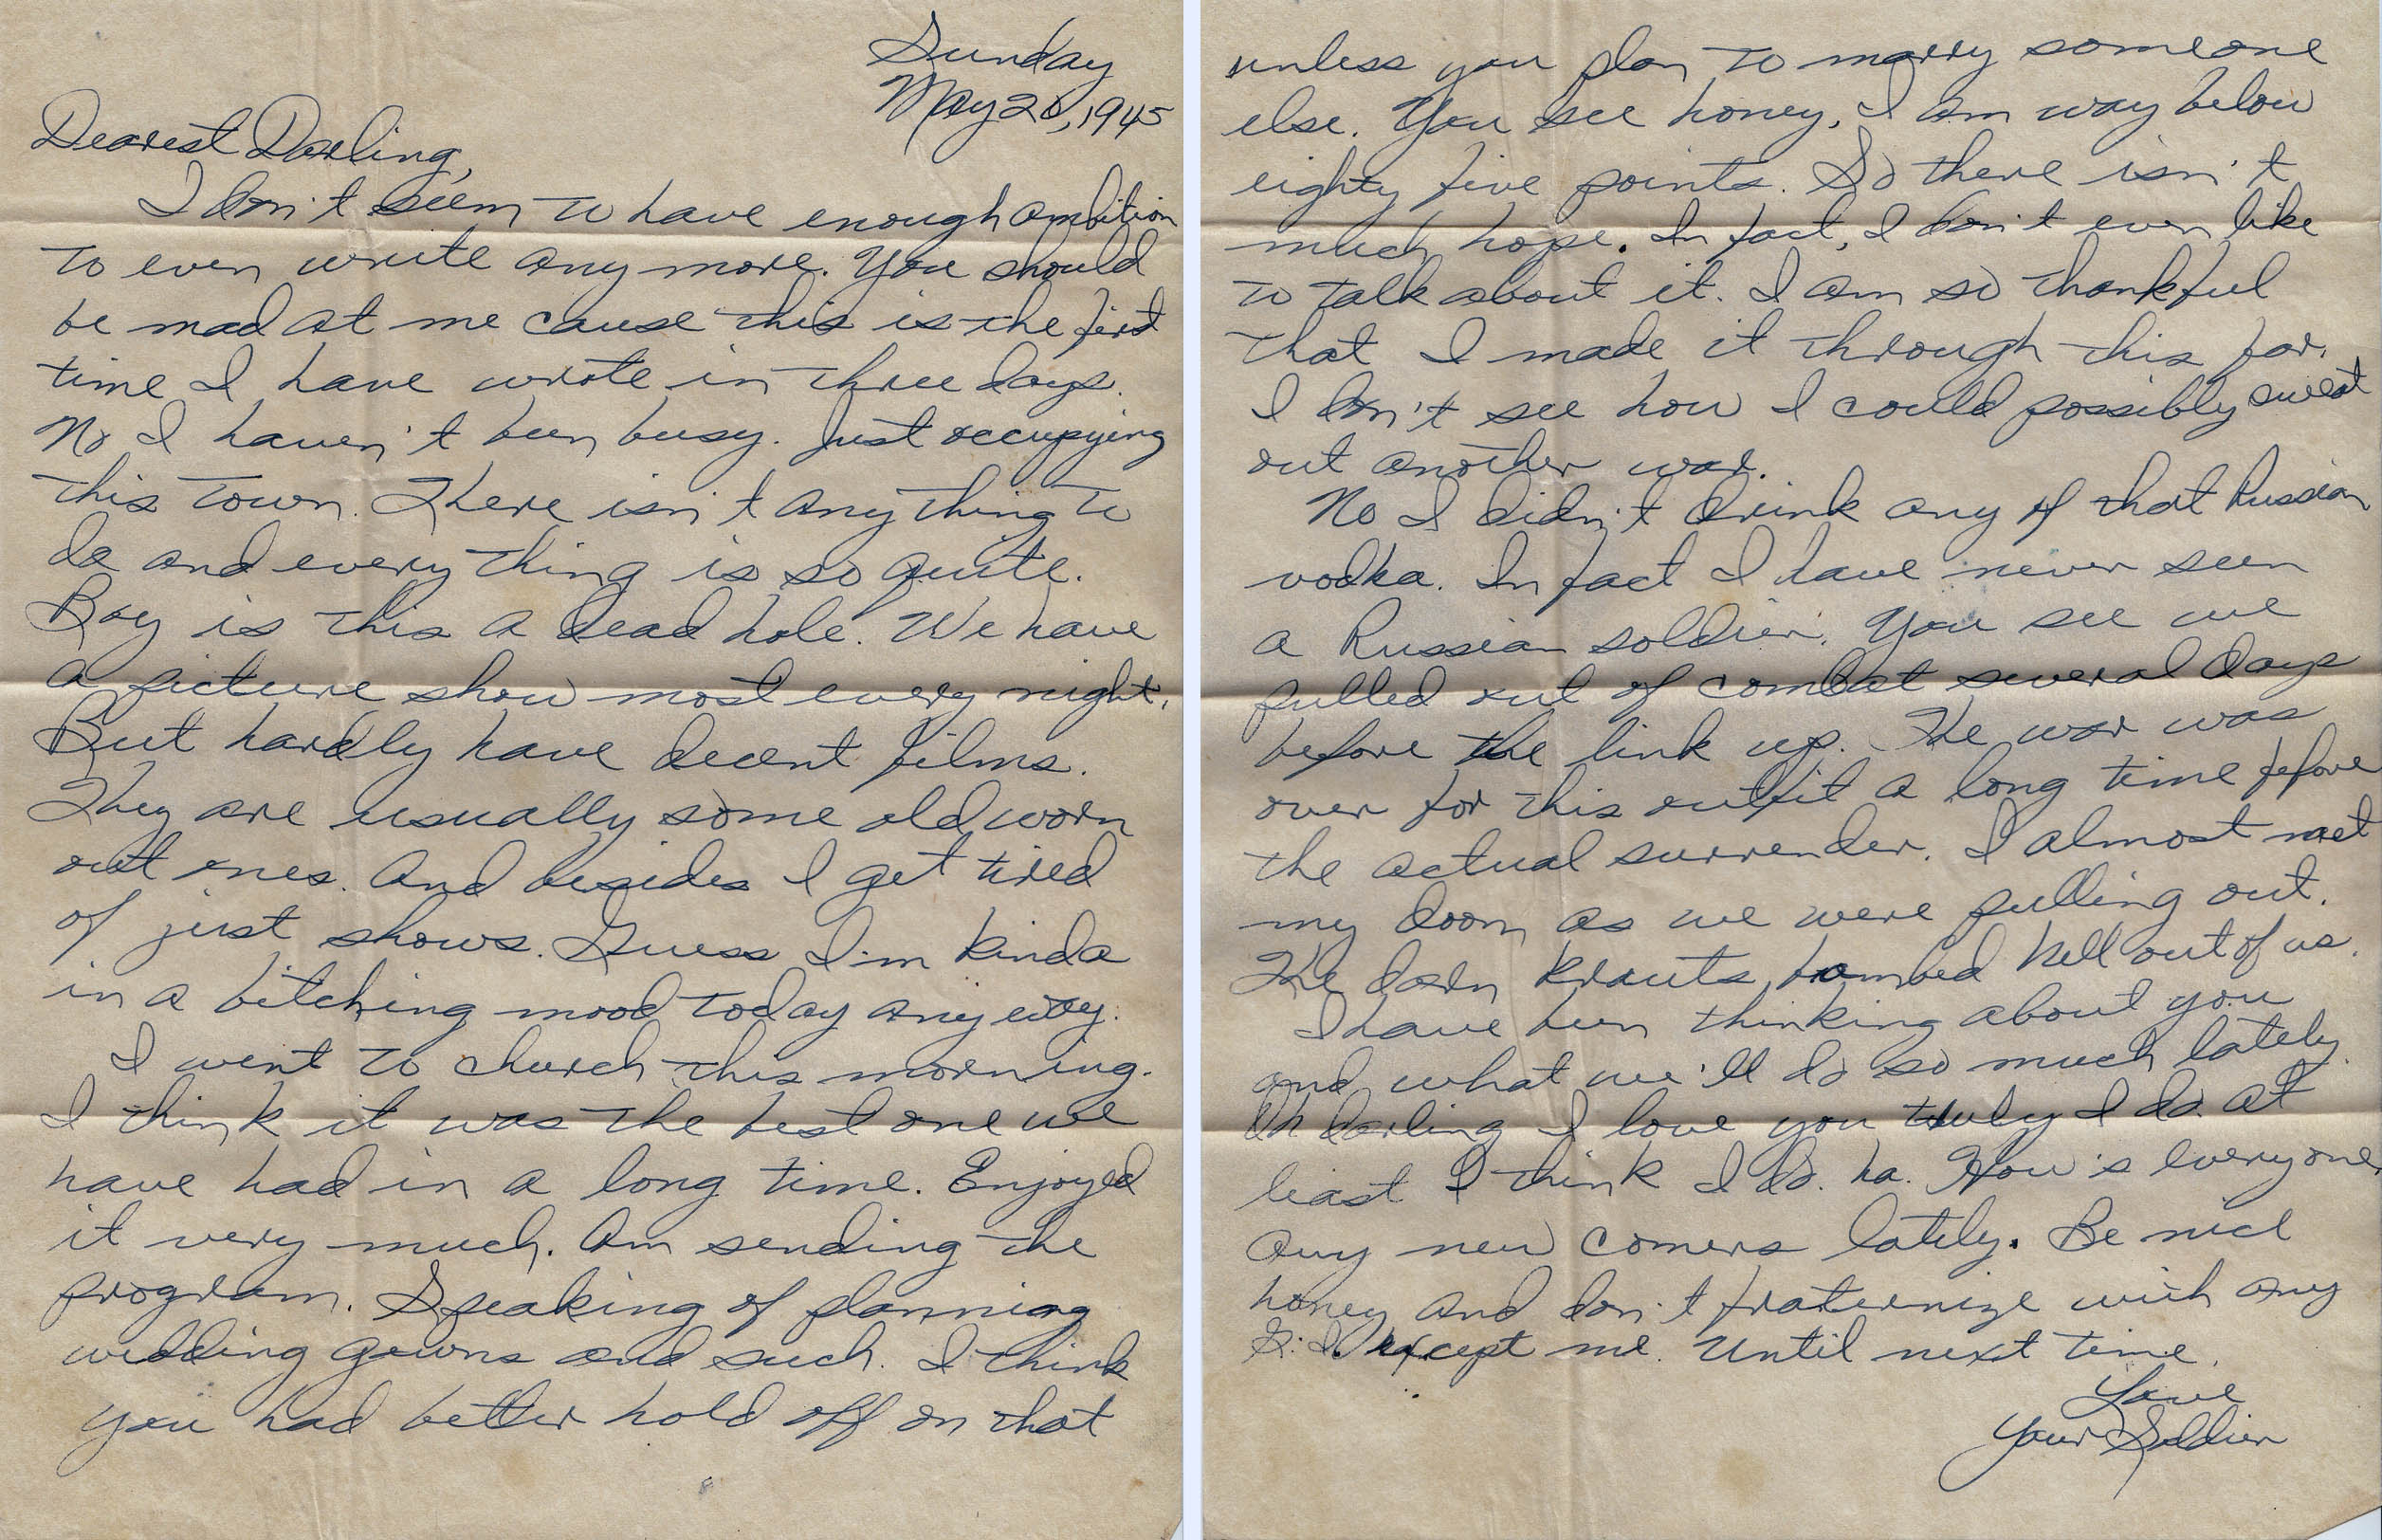 Sunday
May 20, 1945
Dearest Darling,
I don't seem to have enough ambition
to even write any more. You should
be mad at me cause this is the first
time I have wrote in three days.
No I haven't been busy. Just occupying
this town. There isn't any thing to
do and every thing is so quite.
Boy is this a dead hole. We have
a picture show most every night.
But hardly have decent films.
They are usually some old worn
out ones. And besides I get tired
of just shows. Guess I'm kinda
in a bitching mood today any way.
I went to church this morning.
I think it was the best one we
have had in a long time. Enjoyed
it very much. Am sending the
program. Speaking of planning
wedding gowns and such. I think
you had better hold off on that
unless you plan to marry someone
else. You see honey, I am way below
eighty five points. So there isn't
much hope. In fact, I don't even like
to talk about it. I am so thankful
that I made it through this far.
I don't see how I could possibly sweat
out another war.
No I didn't drink any of that Russian
vodka. In fact I have never seen
a Russian soldier. You see we
pulled out of combat several days
before the link up. The war was
over for this outfit a long time before
the actual surrender. I almost met
my doom as we were pulling out.
The darn Krauts bombed hell out of us.
I have been thinking about you
and what we'll do so much lately.
Oh darling I love you truly I do. At
least I think I do. ha. How's everyone,
any new comers lately. Be nice
honey and don't fraternize with any
G.I. except me. Until next time.
Love
Your Soldier